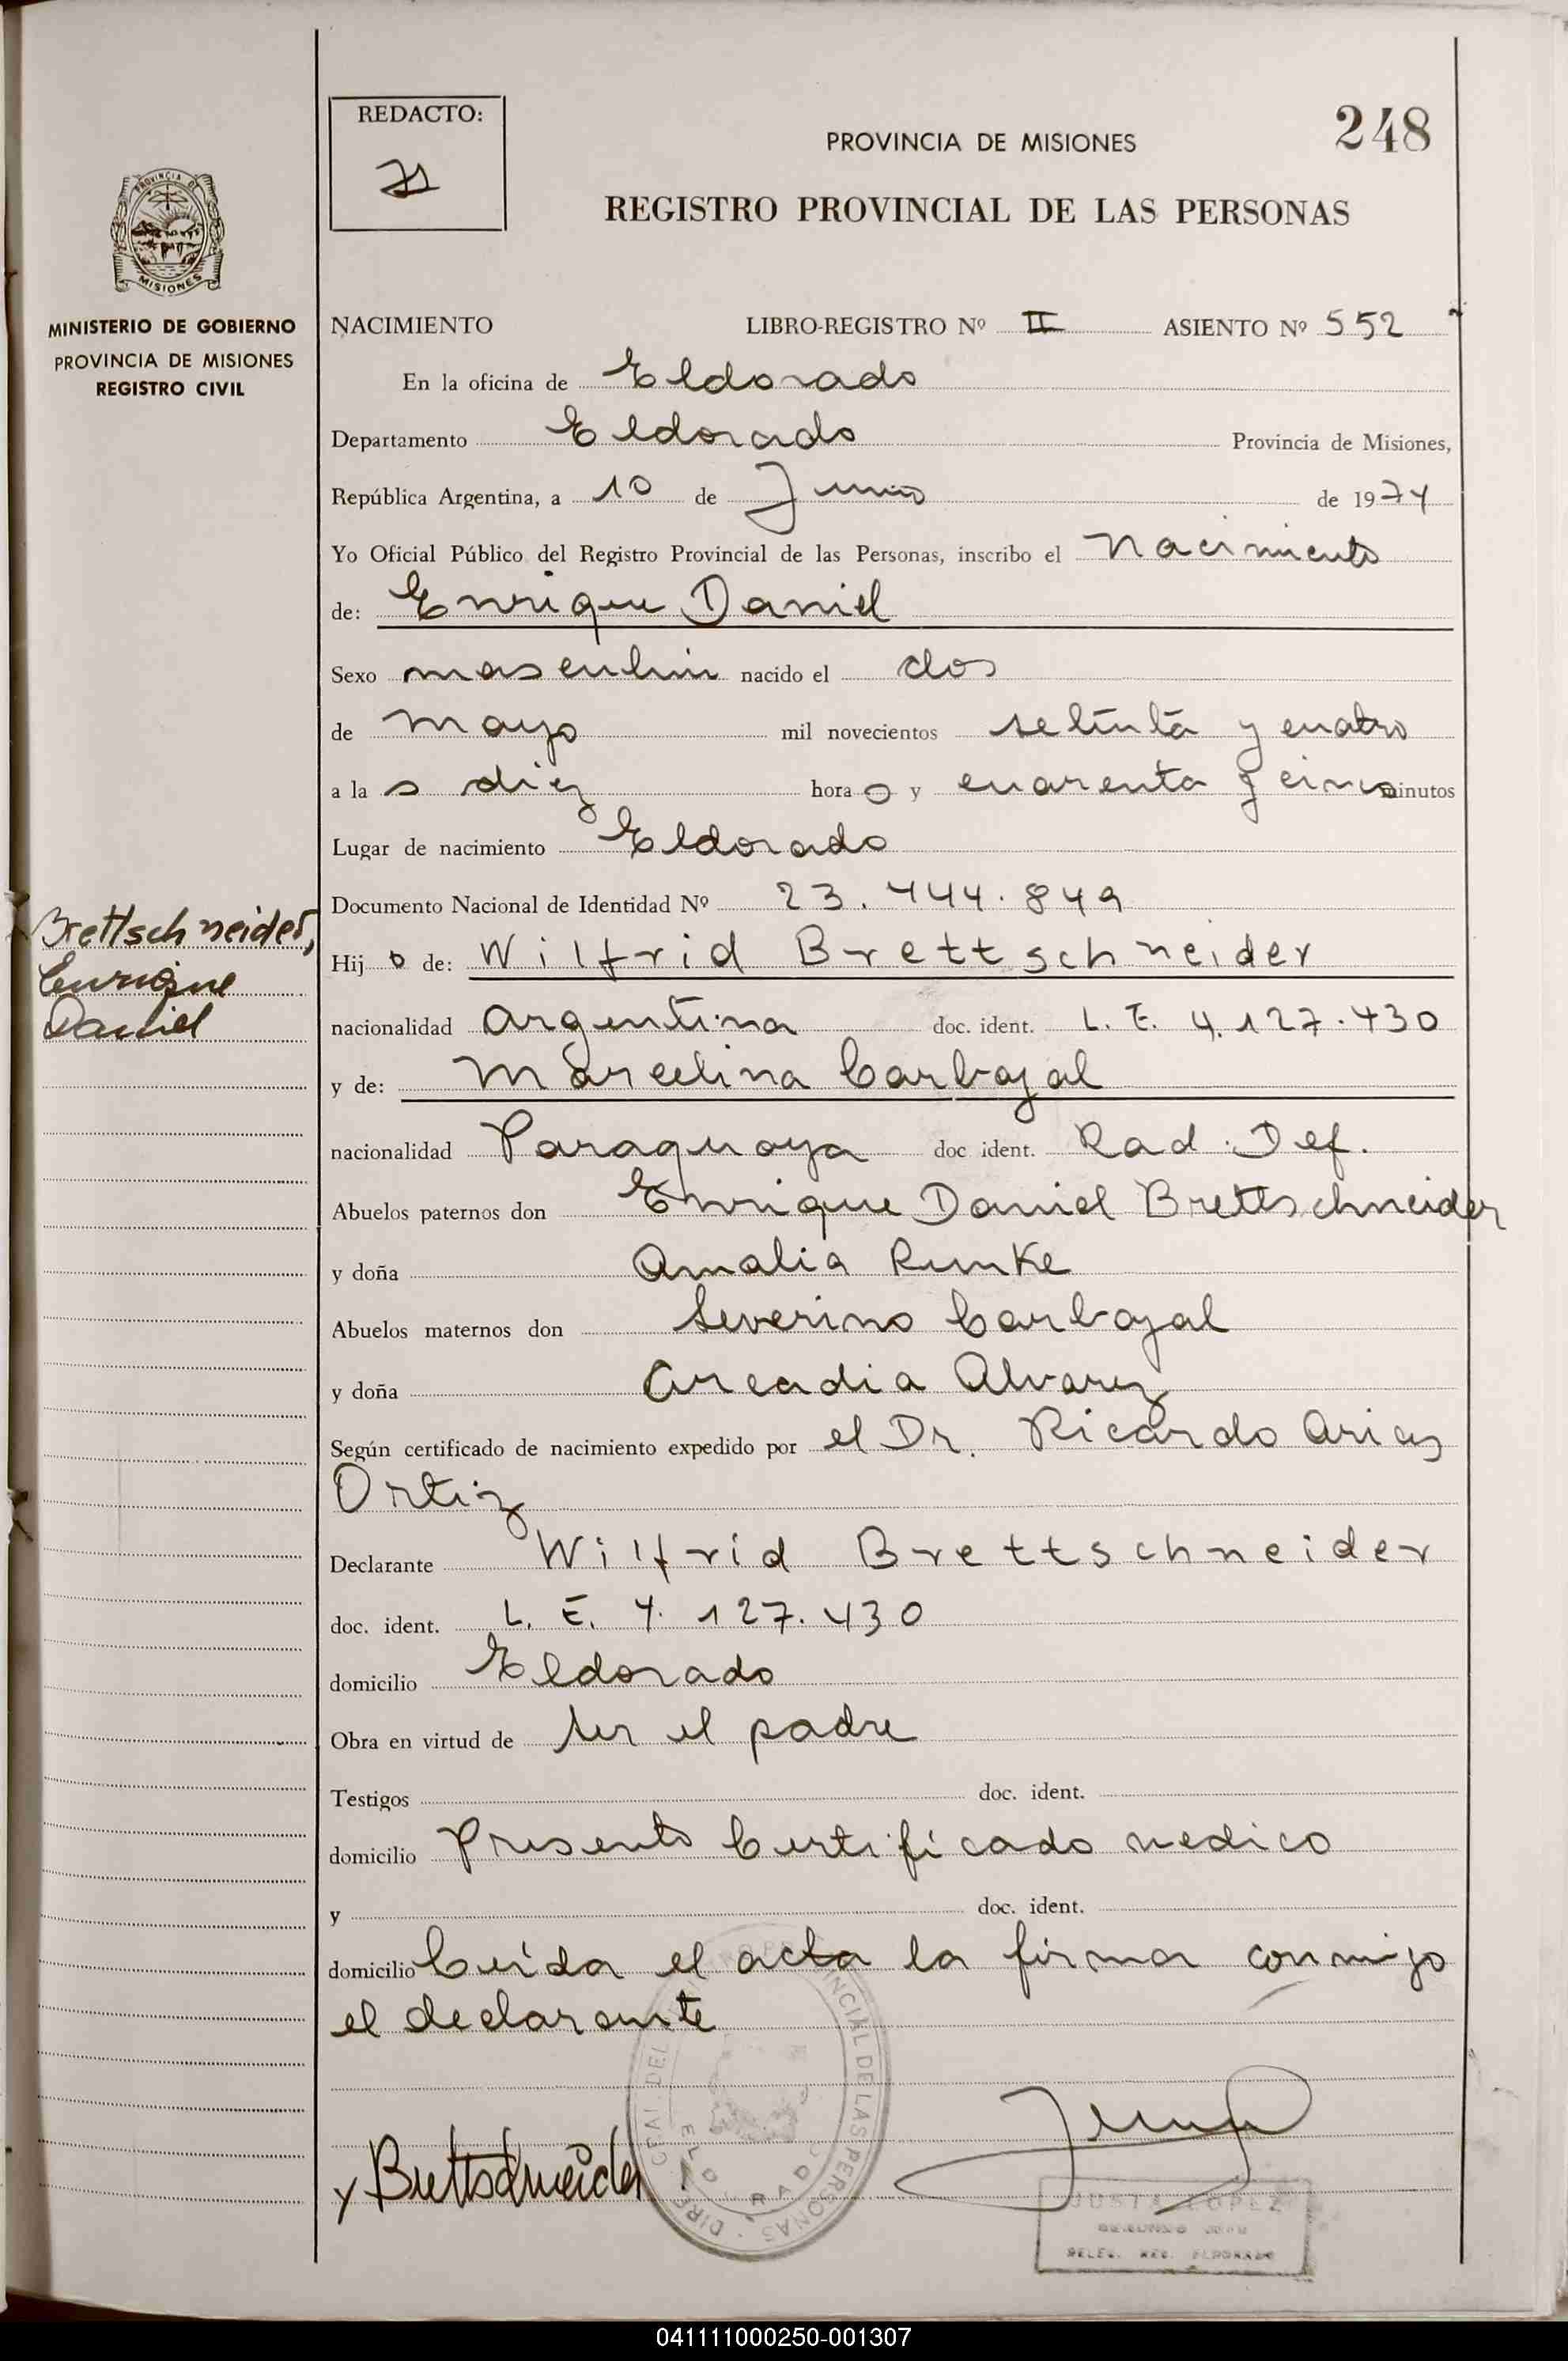 REDACTO:
PROVINCIA DE MISIONES
248
REGISTRO PROVINCIAL DE LAS PERSONAS
PROVINCIA DE
MISIONES
MINISTERIO DE GOBIERNO
PROVINCIA DE MISIONES
REGISTRO CIVIL
NACIMIENTO LIBRO-REGISTRO Nº II ASIENTO Nº 552
En la oficina de Eldorado
Departamento Eldorado Provincia de Misiones,
República Argentina, a 10 de Junio de 1974
Yo Oficial Público del Registro Provincial de las Personas, inscribo el Nacimiento
de: Enrique Daniel
Sexo masculino nacido el dos
de mayo mil novecientos setenta y cuatro
a la s diez hora o y cuarenta y cinco minutos
Lugar de nacimiento Eldorado
Documento Nacional de Identidad Nº 23.444.849
Brettschneider,
Enrique
Daniel
Hij o de: Wilfrid Brettschneider
nacionalidad argentina doc. ident. L. E. 4.127.430
y de: Marcelina Carbajal
nacionalidad Paraguaya doc ident. Rad. Def.
Abuelos paternos don Enrique Daniel Brettschneider
y doña Amalia Runke
Abuelos maternos don Severino Carbajal
y doña Arcadia Alvarez
Según certificado de nacimiento expedido por el Dr. Ricardo Arias
Ortiz
Declarante Wilfrid Brettschneider
doc. ident. L. E. 4.127.430
domicilio Eldorado
Obra en virtud de ser el padre
Testigos doc. ident.
domicilio Presento Certificado medico
y doc. ident.
domicilio Leída el acta la firma conmigo
el declarante
Brettschneider
JUSTA LOPEZ
DELEG. REG. ELDORADO
041111000250-001307